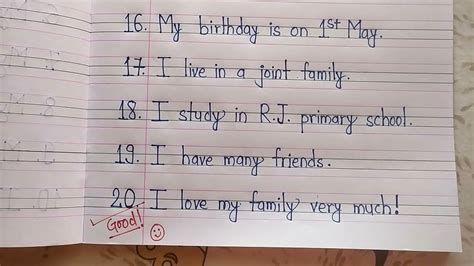 16. My birthday is on 1st May.
17. I live in a joint family.
18. I study in R.J. primary school.
19. I have many friends.
20. I love my family very much!
Good!